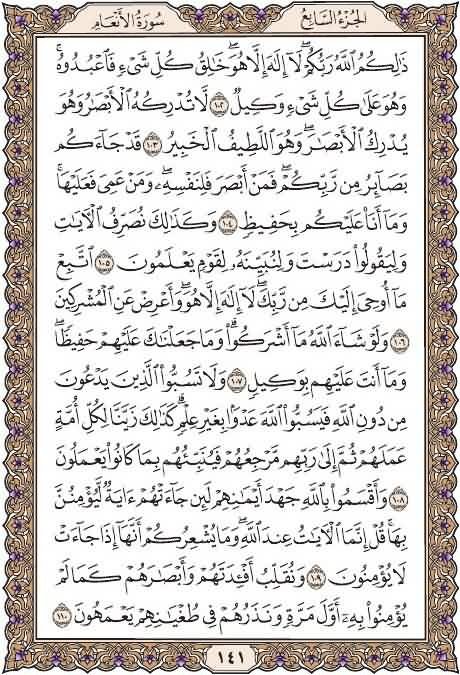 الجزء السابع
سورة الأنعام
ذَٰلِكُمُ ٱللَّهُ رَبُّكُمۡۖ لَآ إِلَٰهَ إِلَّا هُوَۖ خَٰلِقُ كُلِّ شَيۡءٖ فَٱعۡبُدُوهُۚ
وَهُوَ عَلَىٰ كُلِّ شَيۡءٖ وَكِيلٞ ١٠٢ لَّا تُدۡرِكُهُ ٱلۡأَبۡصَٰرُ وَهُوَ
يُدۡرِكُ ٱلۡأَبۡصَٰرَۖ وَهُوَ ٱللَّطِيفُ ٱلۡخَبِيرُ ١٠٣ قَدۡ جَآءَكُم
بَصَآئِرُ مِن رَّبِّكُمۡۖ فَمَنۡ أَبۡصَرَ فَلِنَفۡسِهِۦۖ وَمَنۡ عَمِيَ فَعَلَيۡهَاۚ
وَمَآ أَنَا۠ عَلَيۡكُم بِحَفِيظٖ ١٠٤ وَكَذَٰلِكَ نُصَرِّفُ ٱلۡأٓيَٰتِ
وَلِيَقُولُواْ دَرَسۡتَ وَلِنُبَيِّنَهُۥ لِقَوۡمٖ يَعۡلَمُونَ ١٠٥ ٱتَّبِعۡ
مَآ أُوحِيَ إِلَيۡكَ مِن رَّبِّكَۖ لَآ إِلَٰهَ إِلَّا هُوَۖ وَأَعۡرِضۡ عَنِ ٱلۡمُشۡرِكِينَ
١٠٦ وَلَوۡ شَآءَ ٱللَّهُ مَآ أَشۡرَكُواْۗ وَمَا جَعَلۡنَٰكَ عَلَيۡهِمۡ حَفِيظٗاۖ
وَمَآ أَنتَ عَلَيۡهِم بِوَكِيلٖ ١٠٧ وَلَا تَسُبُّواْ ٱلَّذِينَ يَدۡعُونَ
مِن دُونِ ٱللَّهِ فَيَسُبُّواْ ٱللَّهَ عَدۡوَۢا بِغَيۡرِ عِلۡمٖۗ كَذَٰلِكَ زَيَّنَّا لِكُلِّ أُمَّةٍ
عَمَلَهُمۡ ثُمَّ إِلَىٰ رَبِّهِم مَّرۡجِعُهُمۡ فَيُنَبِّئُهُم بِمَا كَانُواْ يَعۡمَلُونَ
١٠٨ وَأَقۡسَمُواْ بِٱللَّهِ جَهۡدَ أَيۡمَٰنِهِمۡ لَئِن جَآءَتۡهُمۡ ءَايَةٞ لَّيُؤۡمِنُنَّ
بِهَاۚ قُلۡ إِنَّمَا ٱلۡأٓيَٰتُ عِندَ ٱللَّهِۖ وَمَا يُشۡعِرُكُمۡ أَنَّهَآ إِذَا جَآءَتۡ
لَا يُؤۡمِنُونَ ١٠٩ وَنُقَلِّبُ أَفۡـِٔدَتَهُمۡ وَأَبۡصَٰرَهُمۡ كَمَا لَمۡ
يُؤۡمِنُواْ بِهِۦٓ أَوَّلَ مَرَّةٖ وَنَذَرُهُمۡ فِي طُغۡيَٰنِهِمۡ يَعۡمَهُونَ ١١٠
١٤١